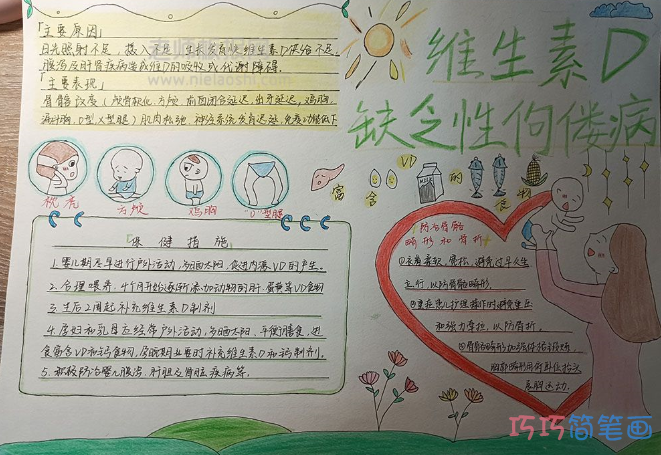 维生素D
缺乏性佝偻病
「主要原因」
日光照射不足，摄入不足，生长发育快维生素D供给不足，
腹泻及肝肾疾病造成维D的吸收或代谢障碍.
「主要表现」
骨骼改变（颅骨软化，方颅，前囟闭合延迟，出牙延迟，鸡胸，
漏斗胸，O型X型腿）肌肉松弛，神经系统发育迟缓，免疫功能低下
枕秃
方颅
鸡胸
"O"型腿
富含VD的食物
「保健措施」
1.婴儿期尽早进行户外活动，多晒太阳，促进内源VD的产生.
2.合理喂养，4个月开始逐渐添加动物的肝.蛋黄等VD食物
3.生后2周起补充维生素D制剂
4.孕妇和乳母应经常户外活动，多晒太阳，平衡膳食，进
食富含VD和钙食物，孕晚期业要时补充维生素D和钙制剂.
5.积极防治婴儿腹泻.肝胆及肾脏疾病等.
防治骨骼
畸形和骨折
①衣着柔软，宽松，避免过早久坐
走行，以防骨骼畸形.
②重症患儿护理操作时避免重压
和强力牵拉，以防骨折.
www.nielaoshi.com
巧巧简笔画